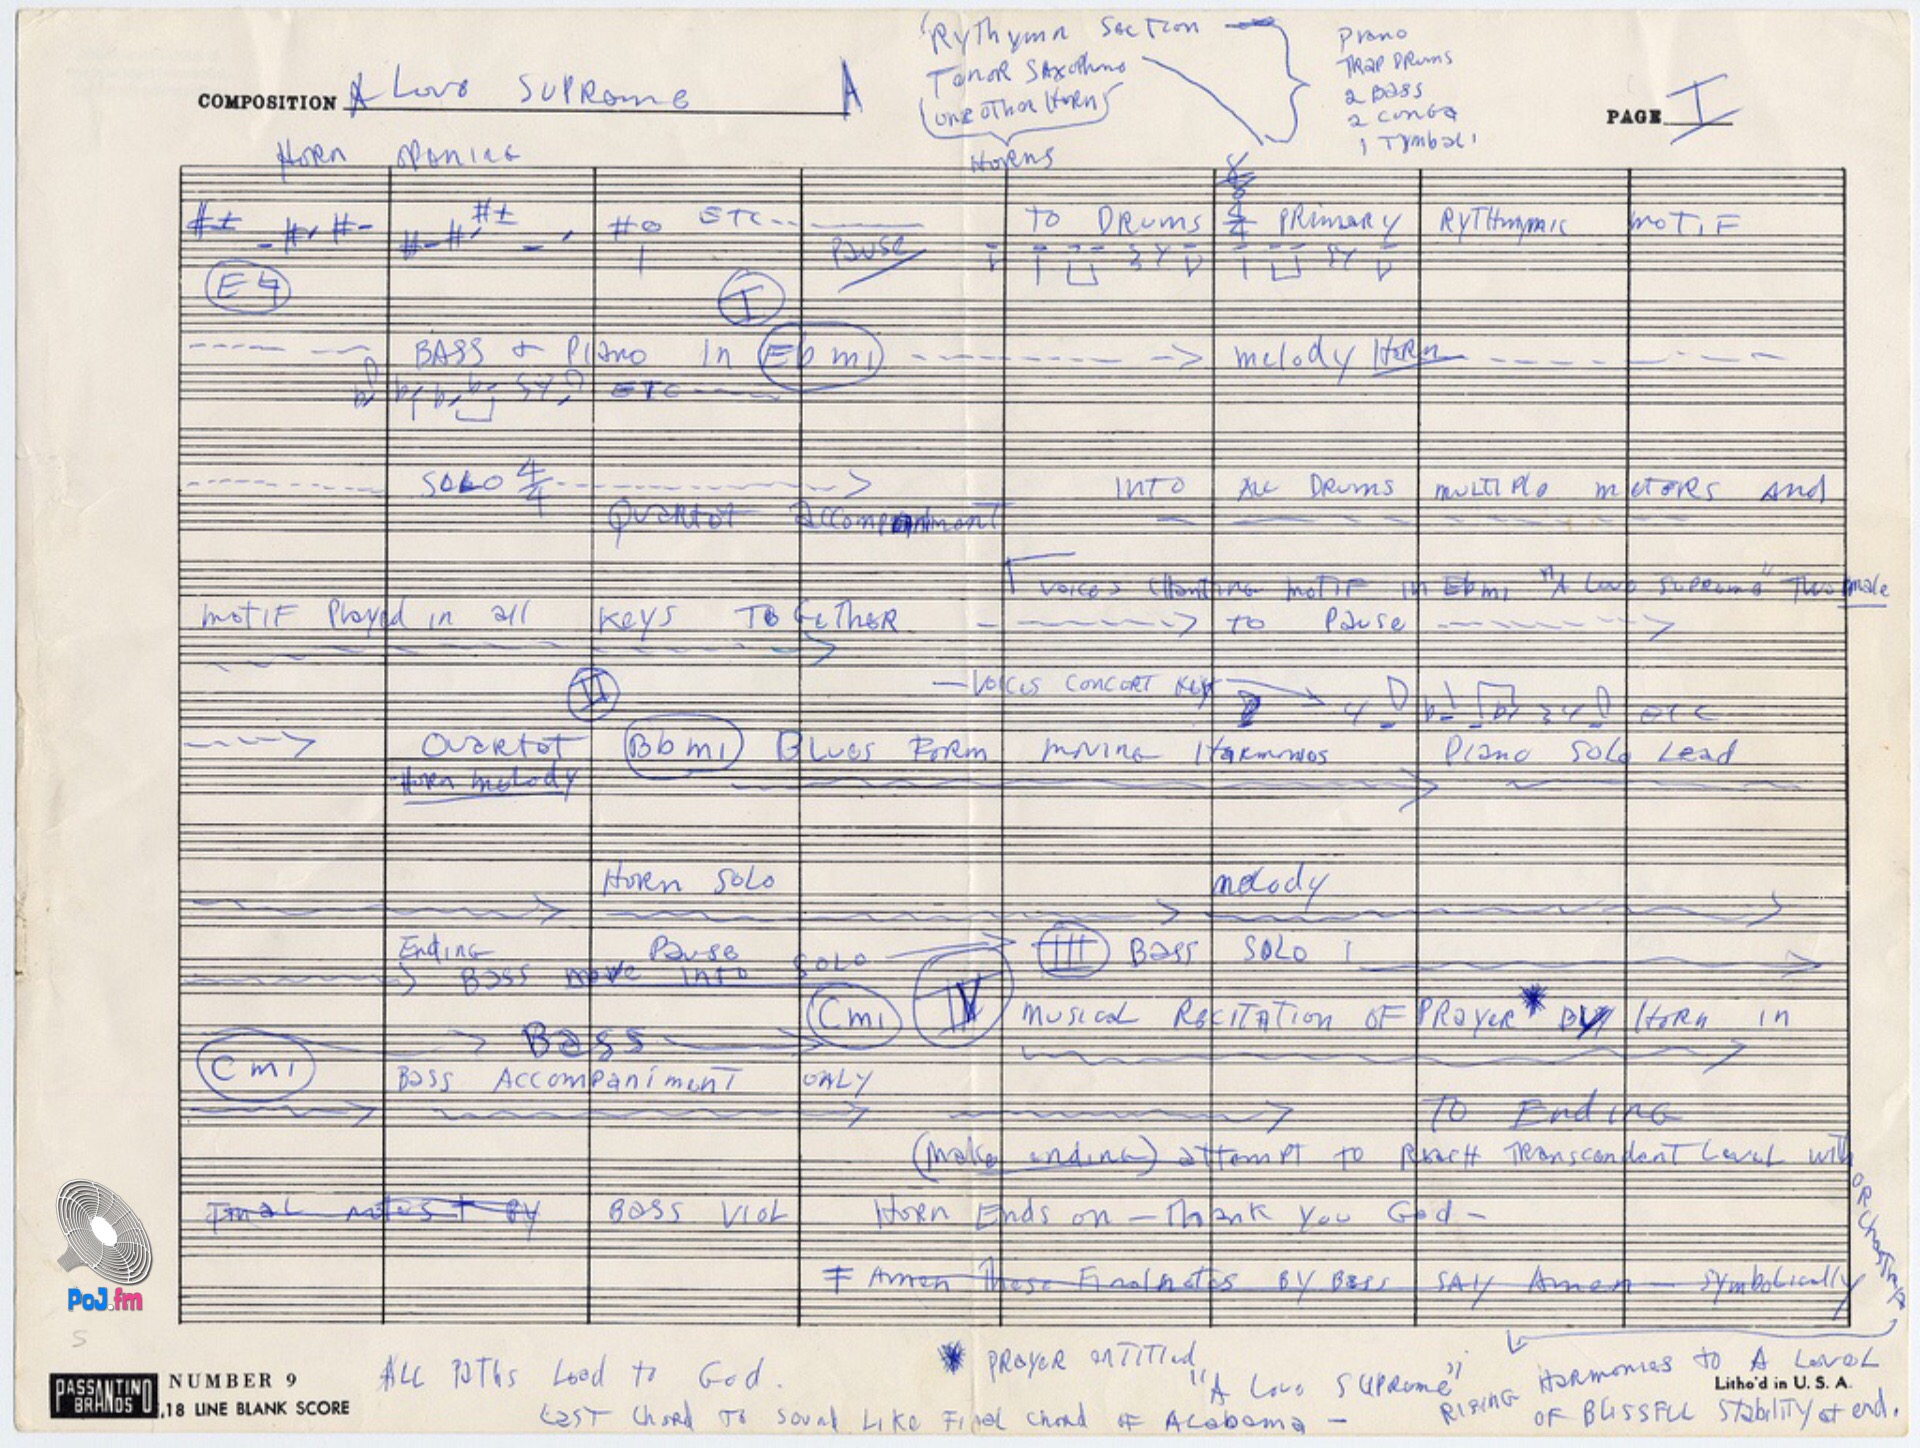 Rythymn Section
Tenor Saxophone
(one other Horn)
Horns
Piano
TRAP DRUMS
2 BASS
2 CONGA
1 Tymbali
COMPOSITION A Love Supreme
PAGE I
HORN OPENING
ETC
PAUSE
TO DRUMS 4/4 PRIMARY RYTHMIC MOTIF
E4
I
BASS & PIANO IN Eb mi melody HORN
ETC
SOLO 4/4 INTO ALL DRUMS MULTIPLE METERS AND
QUARTET Accompaniment
VOICES CHANTING MOTIF IN Ebmi "A Love Supreme" Two male
MOTIF Played in all KEYS TOGETHER to Pause
II
VOICES CONCERT KEY ETC
QUARTET Bb mi BLUES FORM MOVING HARMONIES PIANO SOLO LEAD
HORN melody
HORN SOLO melody
Ending Pause III BASS SOLO
BASS move INTO SOLO
Cmi IV MUSICAL RECITATION OF PRAYER * BY HORN in
BASS
Cmi
BASS ACCOMPANIMENT ONLY
TO Ending
(Make ending) attempt to REACH TRANSCENDENT LEVEL WITH ORCHESTRA
FINAL NOTES BY BASS VIOL HORN Ends on — Thank You God —
Amen These Final notes BY BASS SAY Amen — symbolically
ALL PATHS Lead to God.
* PRAYER ENTITLED "A Love SUPREME"
RISING HARMONIES TO A LEVEL
OF BLISSFUL STABILITY at end.
LAST Chord TO SOUND LIKE Final Chord OF ALABAMA —
PoJ.fm
S
PASSANTINO BRANDS
NUMBER 9
18 LINE BLANK SCORE
Litho'd in U. S. A.